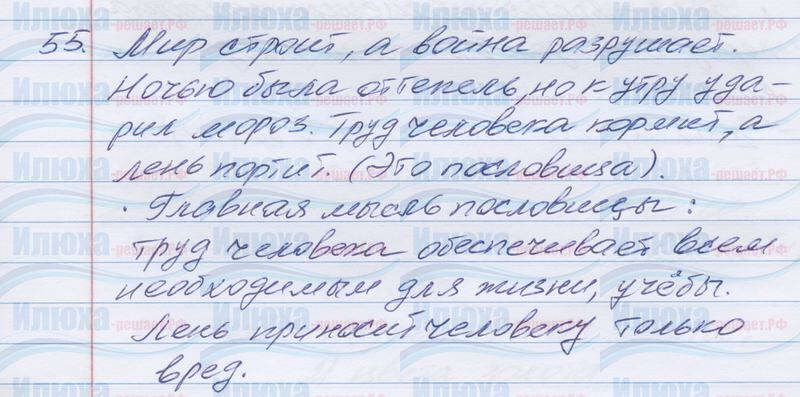 55. Мир строит, а война разрушает.
Ночью была оттепель, но к утру уда-
рил мороз. Труд человека кормит, а
лень портит. (Это пословица).
· Главная мысль пословицы:
труд человека обеспечивает всем
необходимым для жизни, учёбы.
Лень приносит человеку только
вред.